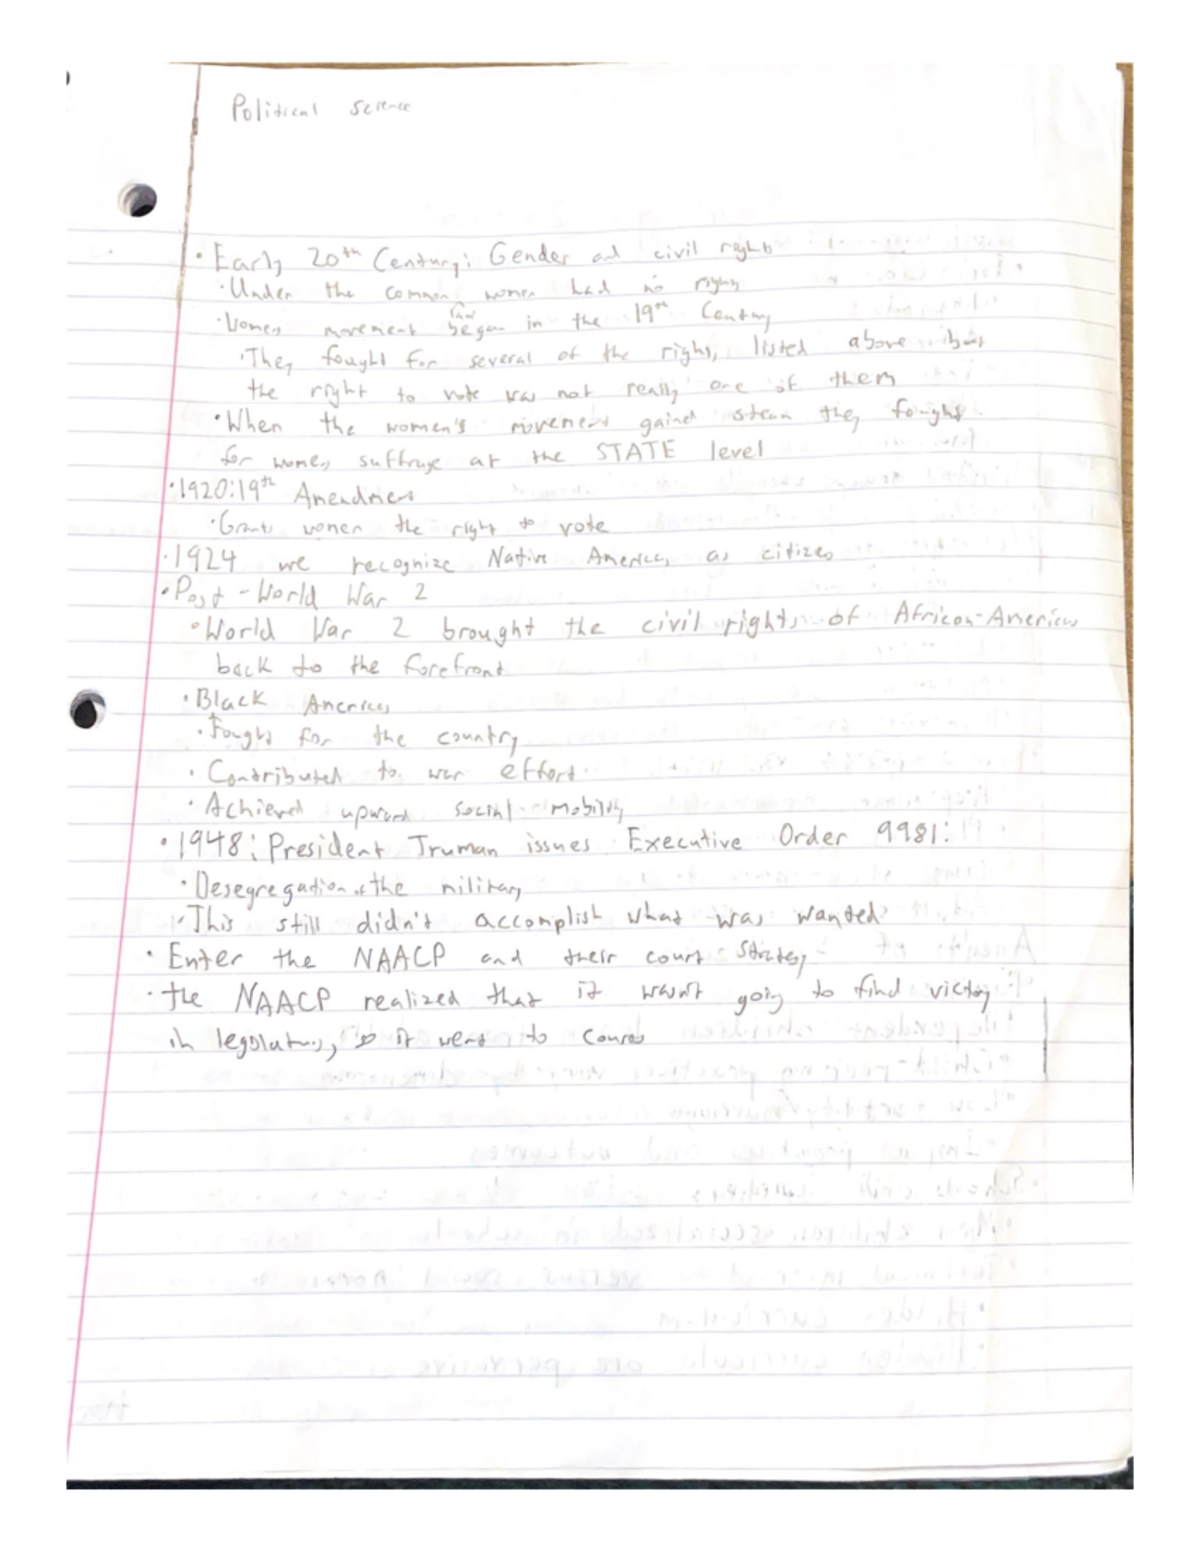 Political Science
• Early 20th Century: Gender and civil rights
• Under the common law women had no rights
• Womens movement began in the 19th Century
• They fought for several of the rights listed above but
the right to vote was not really one of them
• When the women's movement gained steam they fought
for womens suffrage at the STATE level
• 1920: 19th Amendment
• Grants women the right to vote
• 1924 we recognize Native Americans as citizens
• Post-World War 2
• World War 2 brought the civil rights of African-Americans
back to the forefront
• Black Americans
• Fought for the country
• Contributed to war effort
• Achieved upward social mobility
• 1948: President Truman issues Executive Order 9981:
• Desegregation of the military
• This still didn't accomplish what was wanted
• Enter the NAACP and their court strategy
• the NAACP realized that it wasn't going to find victory
in legislatures, so it went to courts